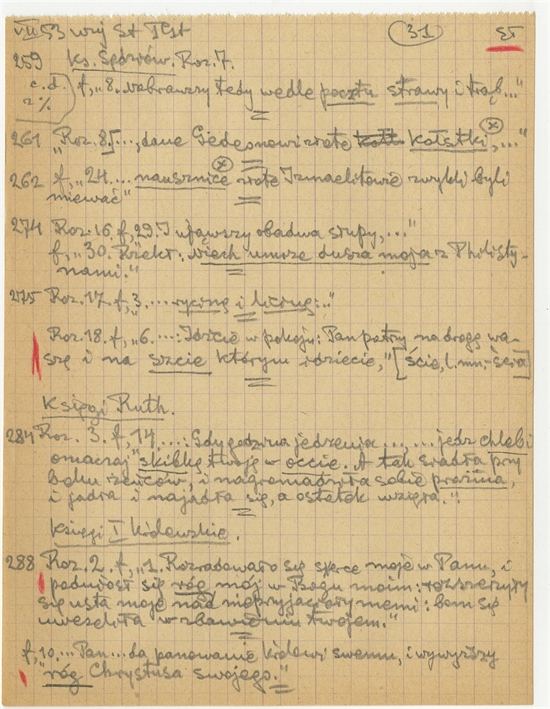 VIII 53 wyj St Test (31) ST
259 Ks. Sędziów. Roz. 7.
c.d. f, „8. nabrawszy tedy wedle pocztu strawy i trąb..."
261 „Roz. 8[..., dane Gedeonowi złote kolstki ⊗,..."
262 f, „24.... nausznice ⊗ złote Izmaelitowie zwykli byli
miewać"
274 Roz. 16 f, 29. I ująwszy obadwa słupy,..."
f, „30. Rzekł: niech umrze dusza moja z Philisty-
nami."
275 Roz. 17. f, „3.... rycinę i licinę:.."
Roz. 18. f, „6....: Idźcie w pokoju: Pan patrzy na drogę wa-
szę i na szcie którym idziecie," [ście, l. mn.-ścia]
Księgi Ruth.
284 Roz. 3. f, 14....: Gdy godzina jedzenia...., ... jedz chleb i
omaczaj skibkę twoję w occie. A tak siadła przy
boku żeńców, i nagromadziła sobie prażma,
i jadła i najadła się, a ostatek wzięła.".
Księgi I Królewskie.
288 Roz. 2. f, „1. Rozradowało się serce moje w Panu, i
podniósł się róg mój w Bogu moim: rozszerzyły
się usta moje nad nieprzyjacioły memi: bom się
uweseliła w zbawieniu twojem."
f, 10... Pan... da panowanie królowi swemu, i wywyższy
róg Chrystusa swojego."